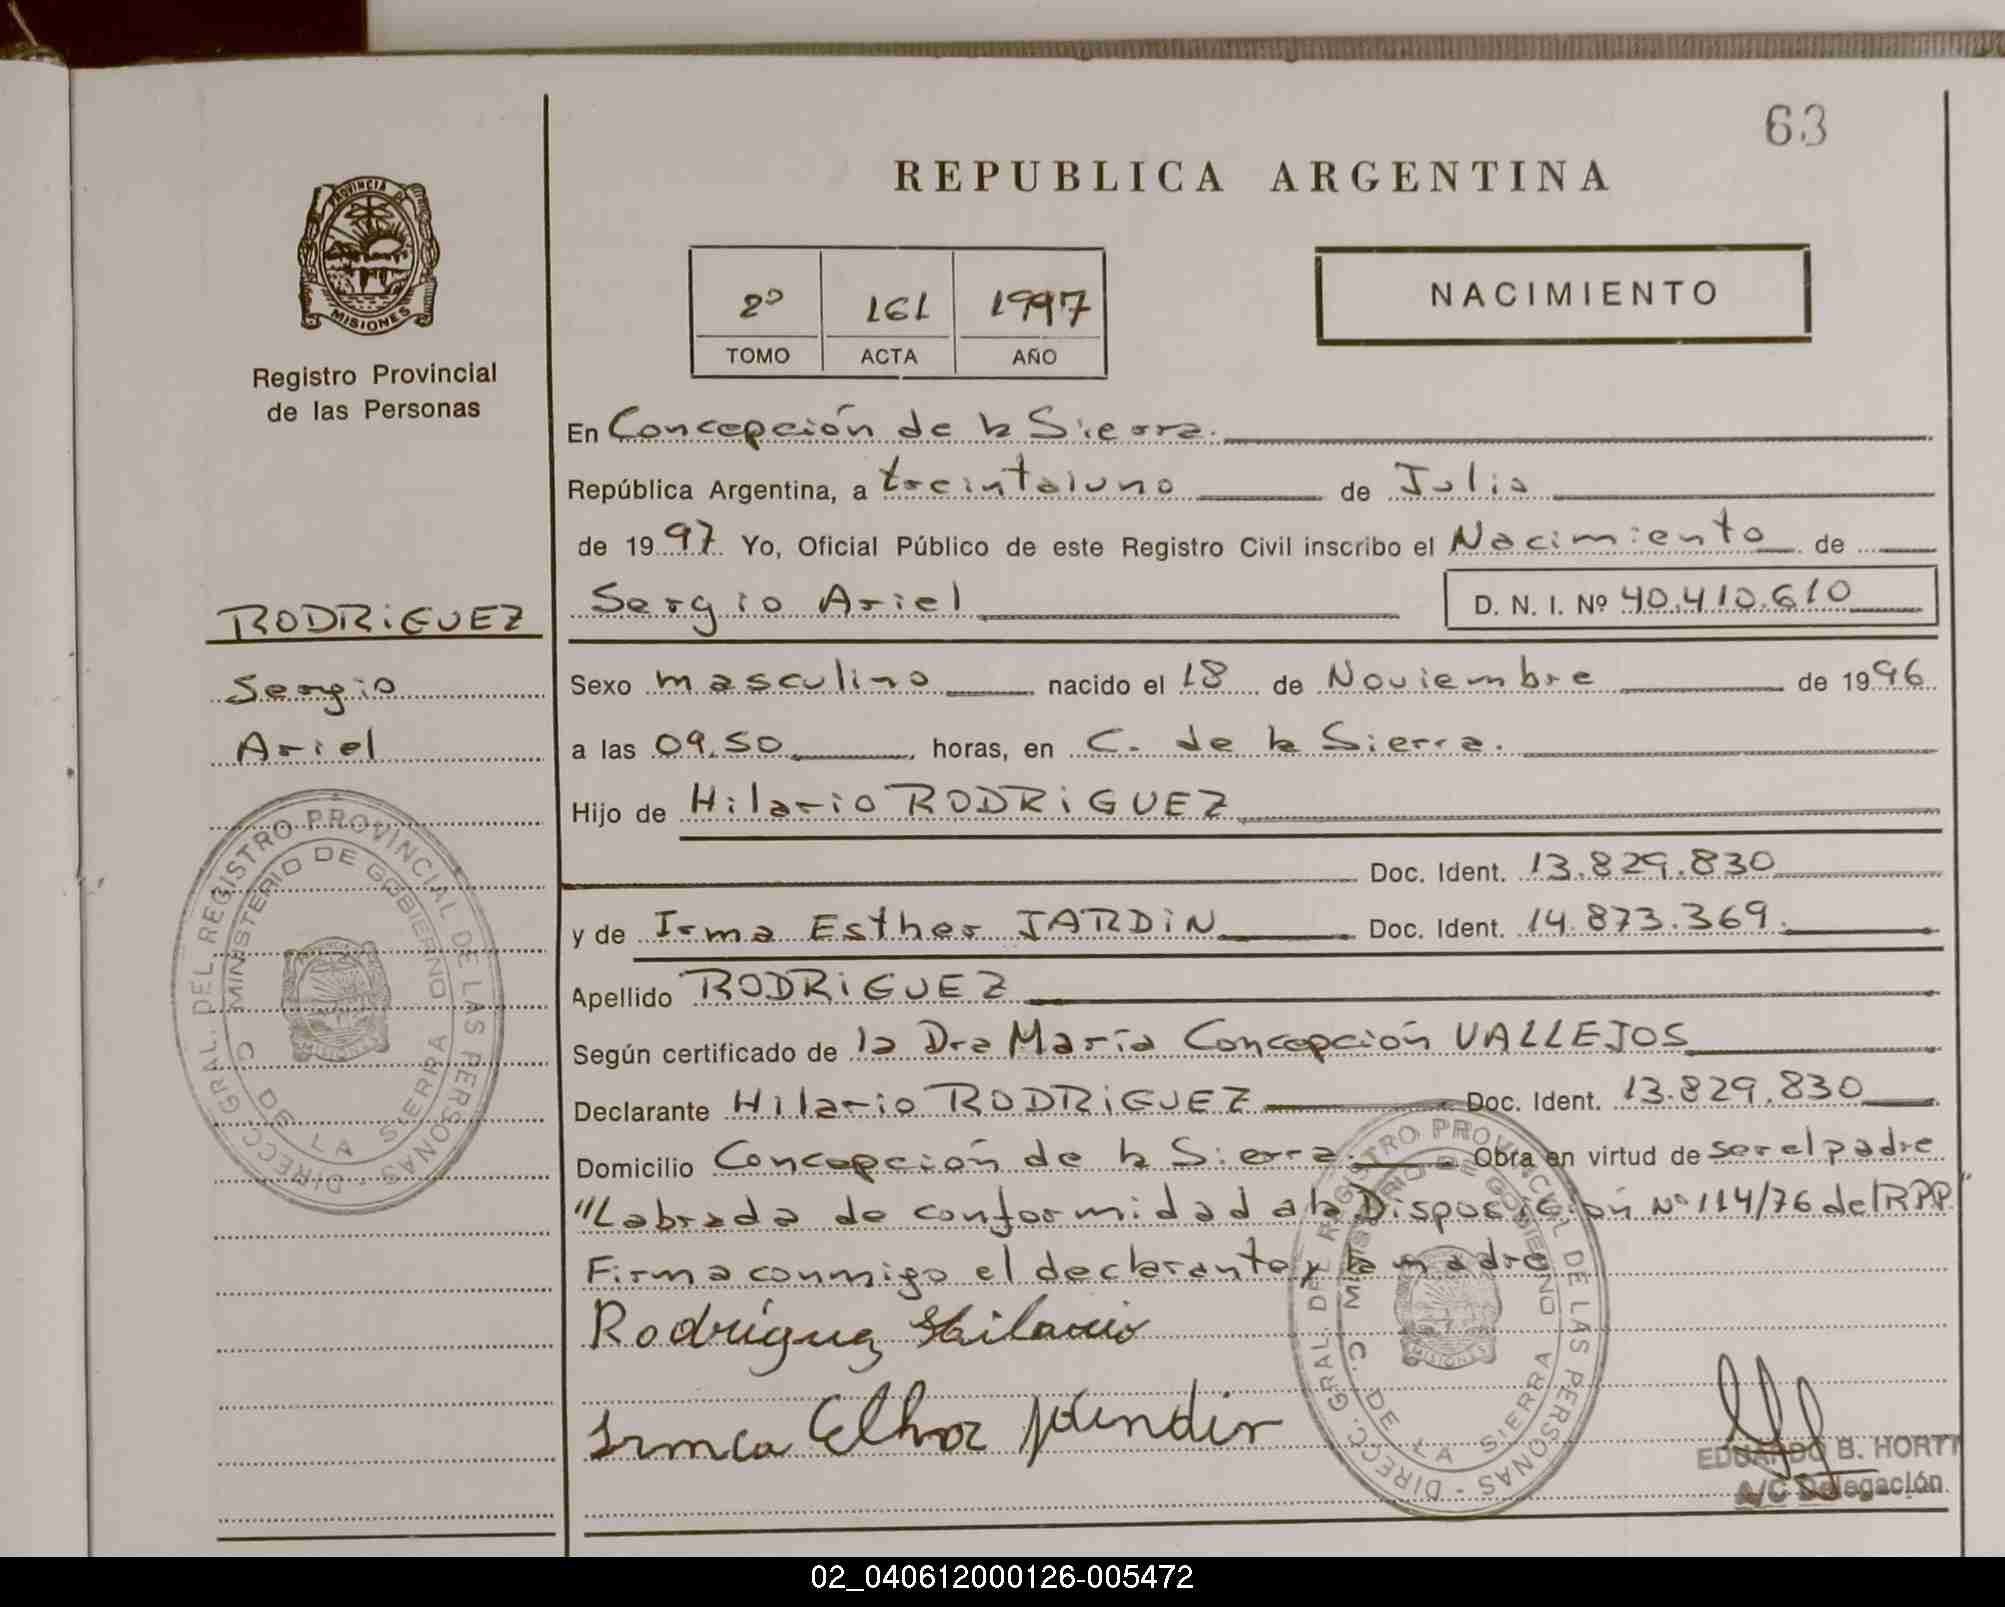 63
REPUBLICA ARGENTINA
PROVINCIA DE
MISIONES
Registro Provincial
de las Personas
2º 161 1997
TOMO ACTA AÑO
NACIMIENTO
En Concepción de la Sierra.
República Argentina, a treintaiuno de Julio
de 1997 Yo, Oficial Público de este Registro Civil inscribo el Nacimiento de
Sergio Ariel D. N. I. Nº 40.410.610
RODRiGUEZ
Sergio
Ariel
Sexo masculino nacido el 18 de Noviembre de 1996
a las 09.50 horas, en C. de la Sierra.
Hijo de Hilario RODRiGUEZ
Doc. Ident. 13.829.830
y de Irma Esther JARDiN Doc. Ident. 14.873.369.
Apellido RODRiGUEZ
Según certificado de la Dra María Concepción VALLEJOS
Declarante Hilario RODRiGUEZ Doc. Ident. 13.829.830
Domicilio Concepción de la Sierra. Obra en virtud de ser el padre
"Labrada de conformidad a la Disposición Nº 114/76 del RPP."
Firma conmigo el declarante y la madre
Rodriguez Hilario
Irma
DIRECC. GRAL. DEL REGISTRO PROVINCIAL DE LAS PERSONAS -
MINISTERIO DE GOBIERNO
C. DE LA SIERRA
MISIONES
DIRECC. GRAL. DEL REGISTRO PROVINCIAL DE LAS PERSONAS -
MINISTERIO DE GOBIERNO
C. DE LA SIERRA
MISIONES
EDUARDO B. HORTT
A/C Delegación
02_040612000126-005472